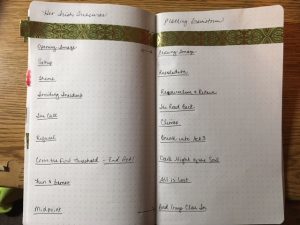 Her Irish Treasures
Opening Image
Setup
Theme
Inciting Incident
The Call
Refusal
Cross the First Threshold - End Act 1
Fun & Games
Midpoint
Plotting Brainstorm
Closing Image
Resolution
Resurrection & Return
The Road Back
Climax
Break into Act 3
Dark Night of the Soul
All is Lost
Bad Guys Close In